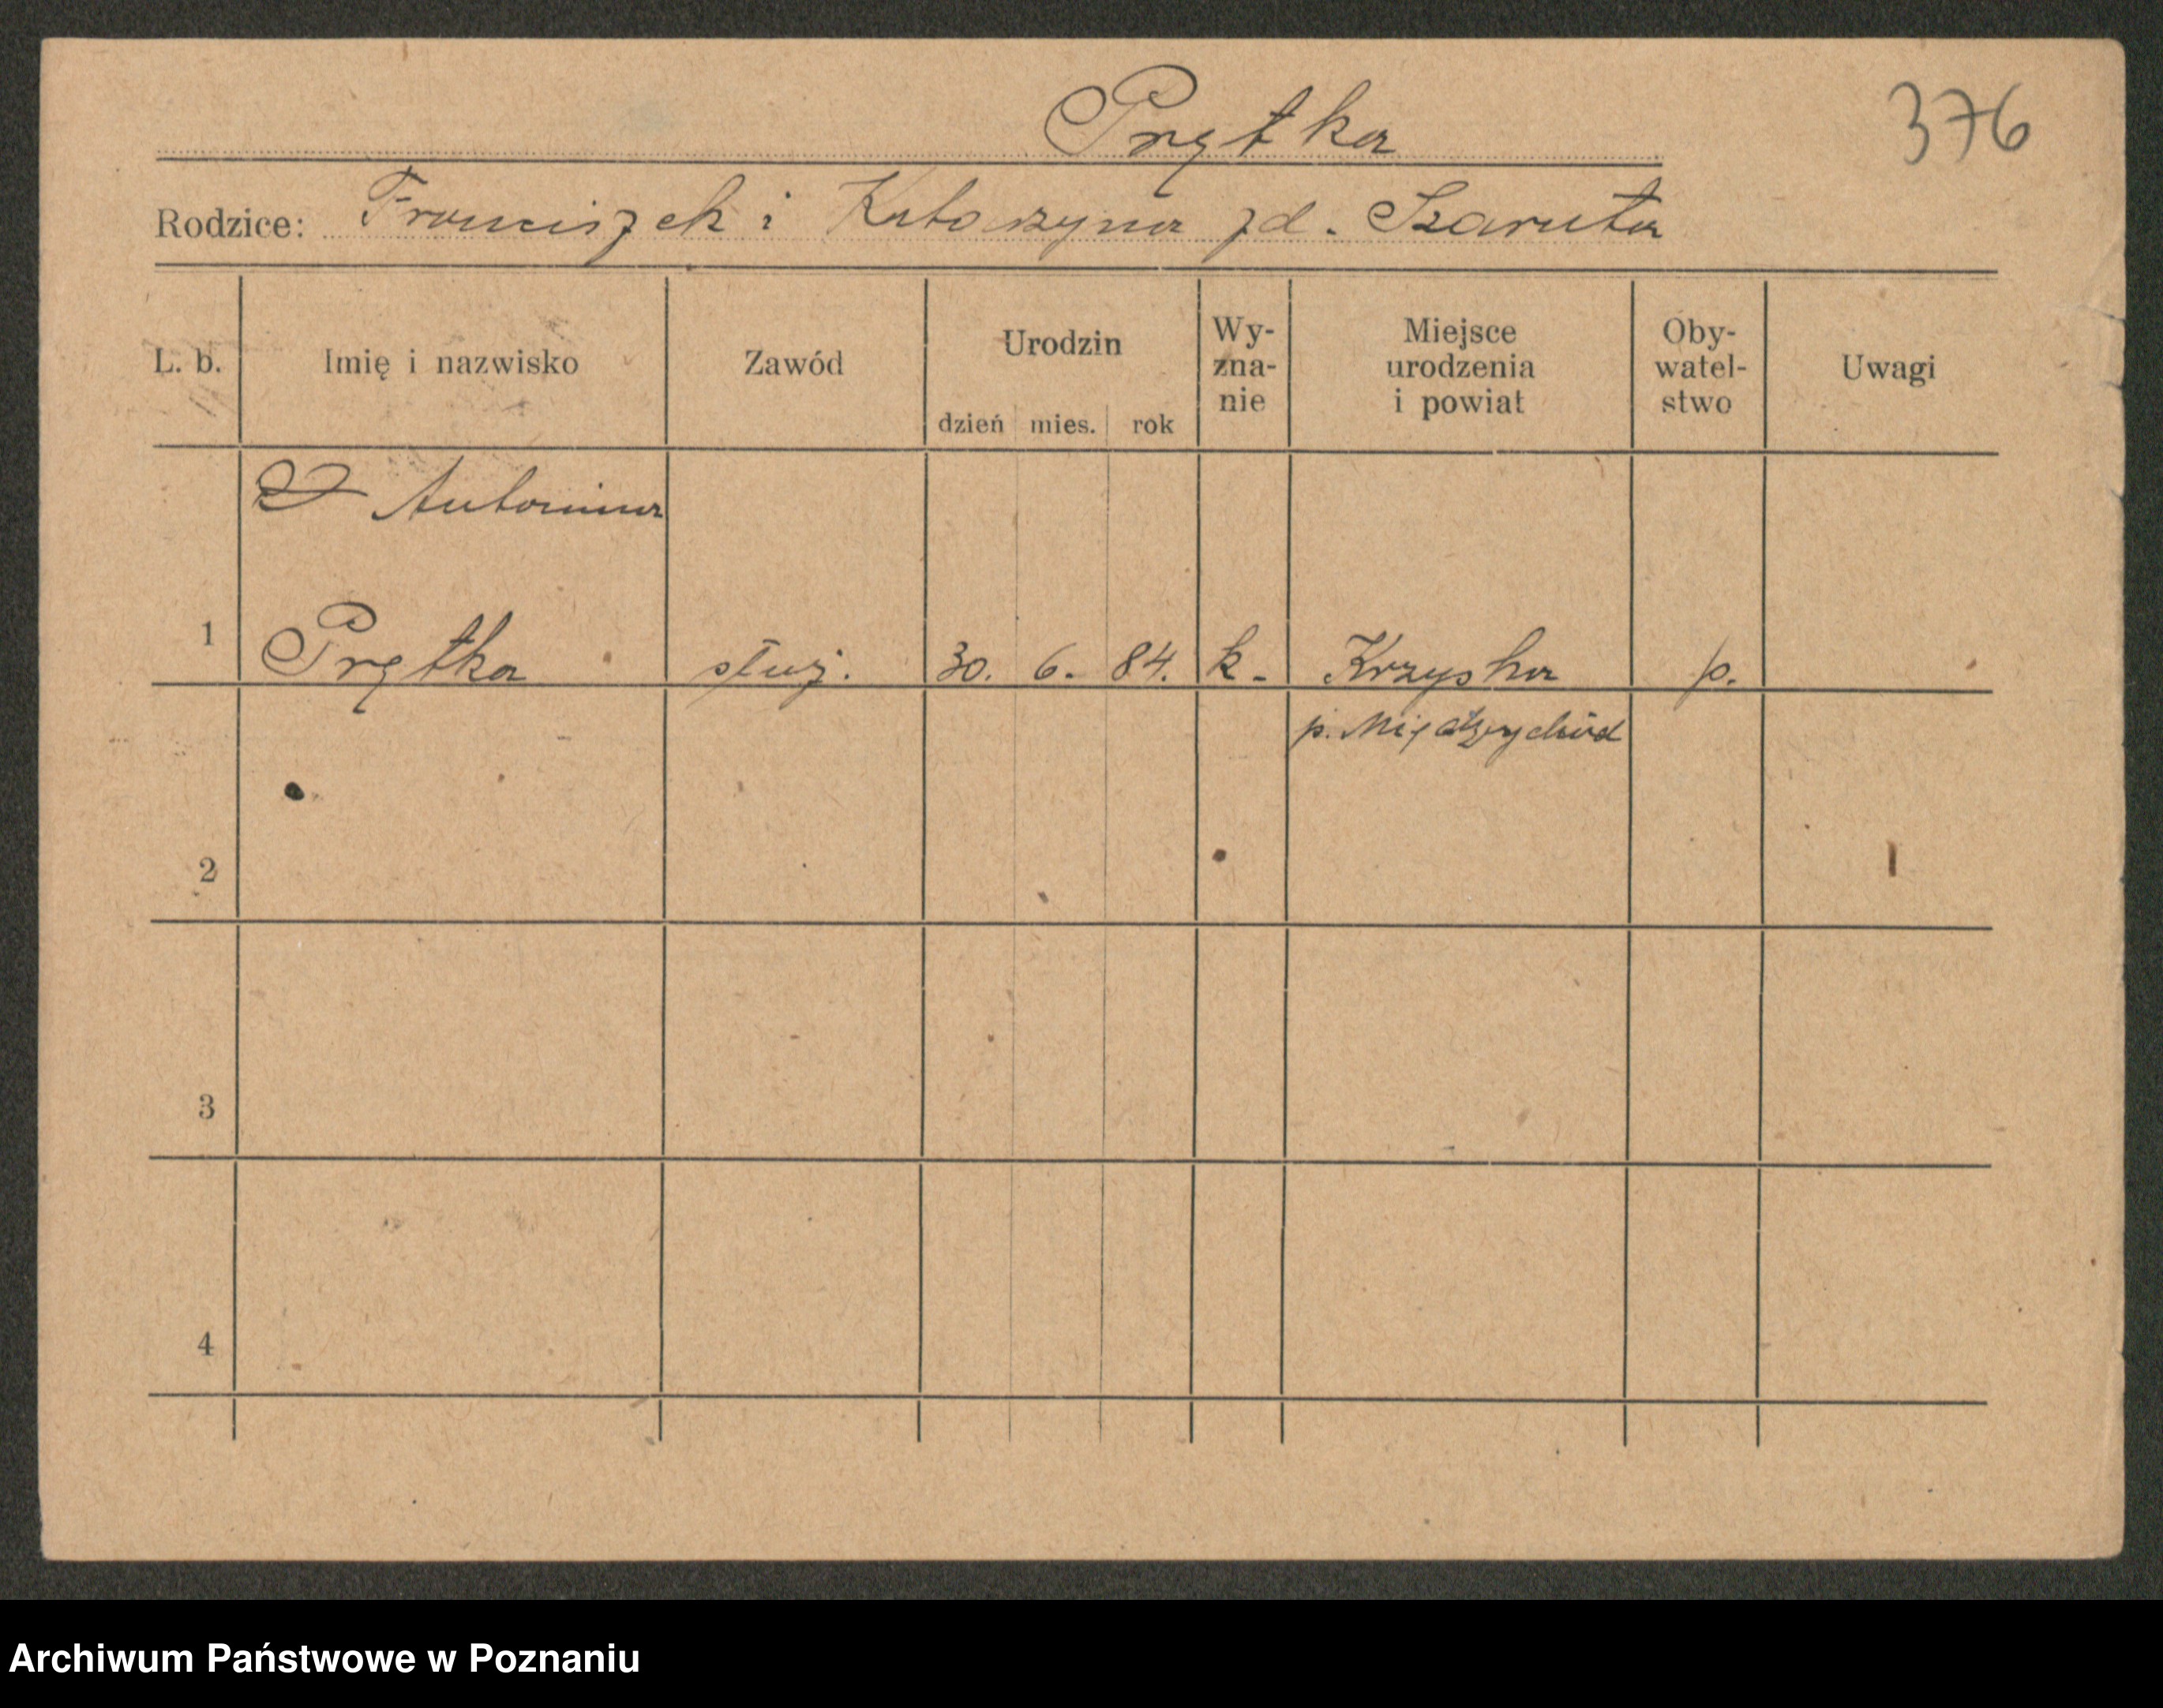 Prętka
376
Rodzice: Franciszek i Katarzyna zd. Szaruta
L. b.
Imię i nazwisko
Zawód
Urodzin
dzień mies. rok
Wy-
zna-
nie
Miejsce
urodzenia
i powiat
Oby-
watel-
stwo
Uwagi
Antonina
1 Prętka służ. 30. 6. 84. k. Krzyska p.
p. Międzychód
2
3
4
Archiwum Państwowe w Poznaniu